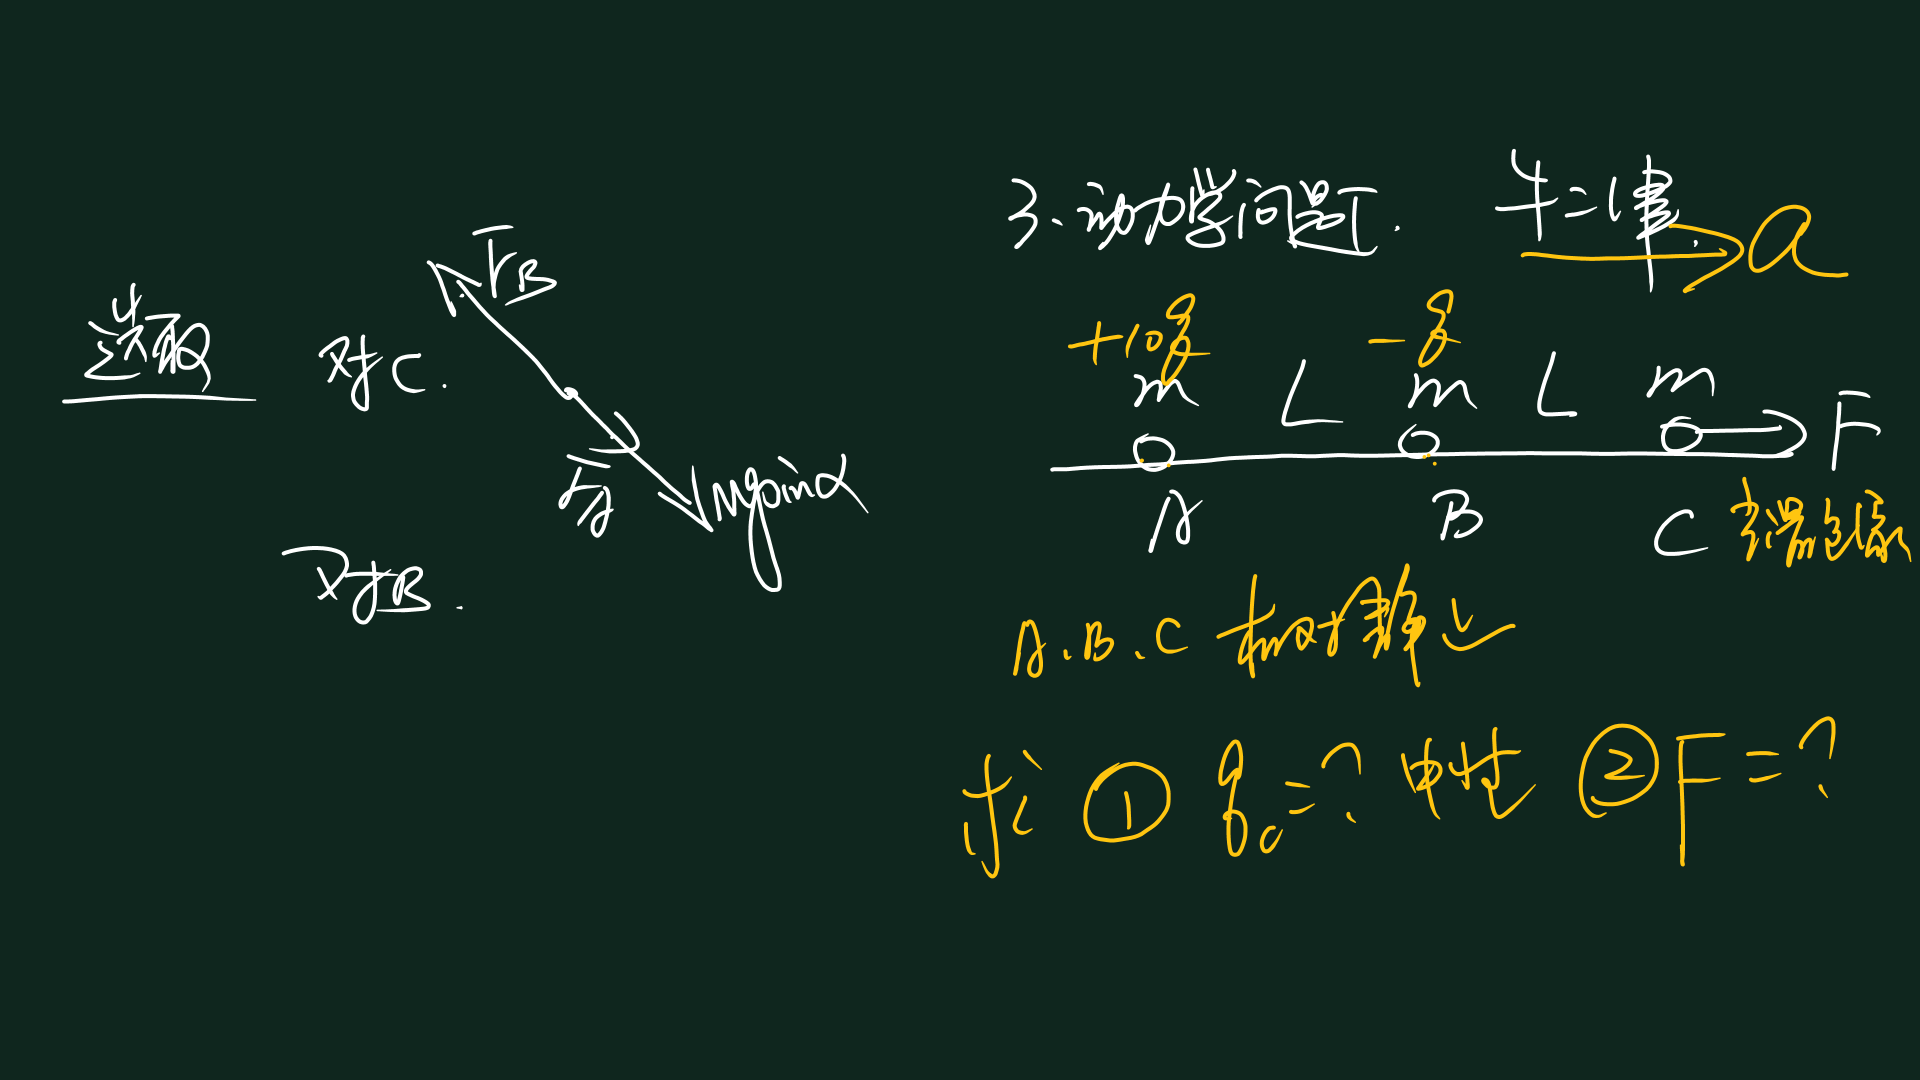 选取
对C.
F_B
F_A
mgsinα
对B.
3、动力学问题. 牛二律.
a
+10q -q
m L m L m
F
A B C 光滑绝缘
A.B.C 相对静止
求 ① q_C=? 电性 ② F=?